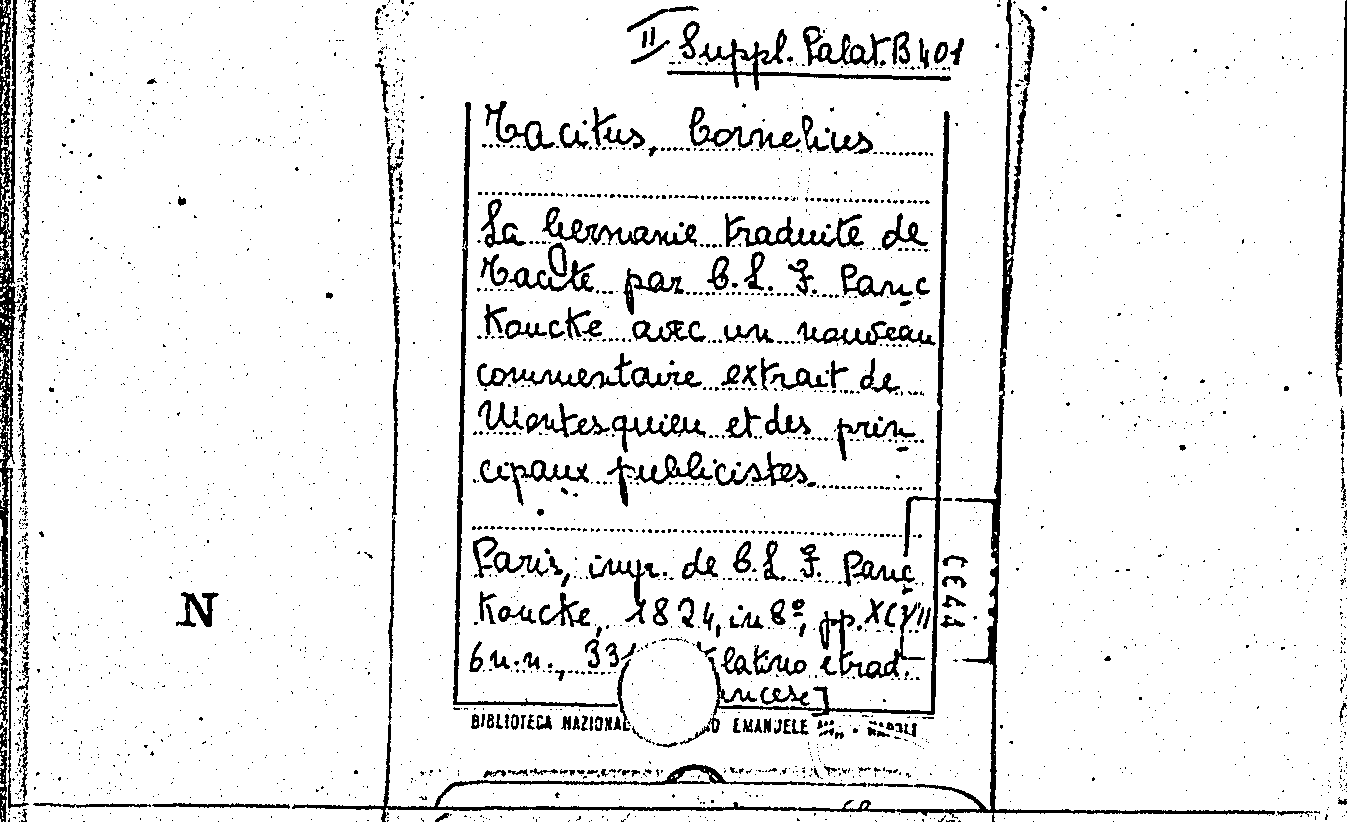 II Suppl. Palat. B 401
Tacitus, Cornelius
La Germanie traduite de
Tacite par C. L. F. Panc
Koucke avec un nouveau
commentaire extrait de
Montesquieu et des prin
cipaux publicistes.
Paris, impr. de C. L. F. Panc
Koucke, 1824, in 8º, pp. XCVII
6 n. n., 33 latino e trad.
ancese]
BIBLIOTECA NAZIONAL O EMANUELE - NAPOLI
N